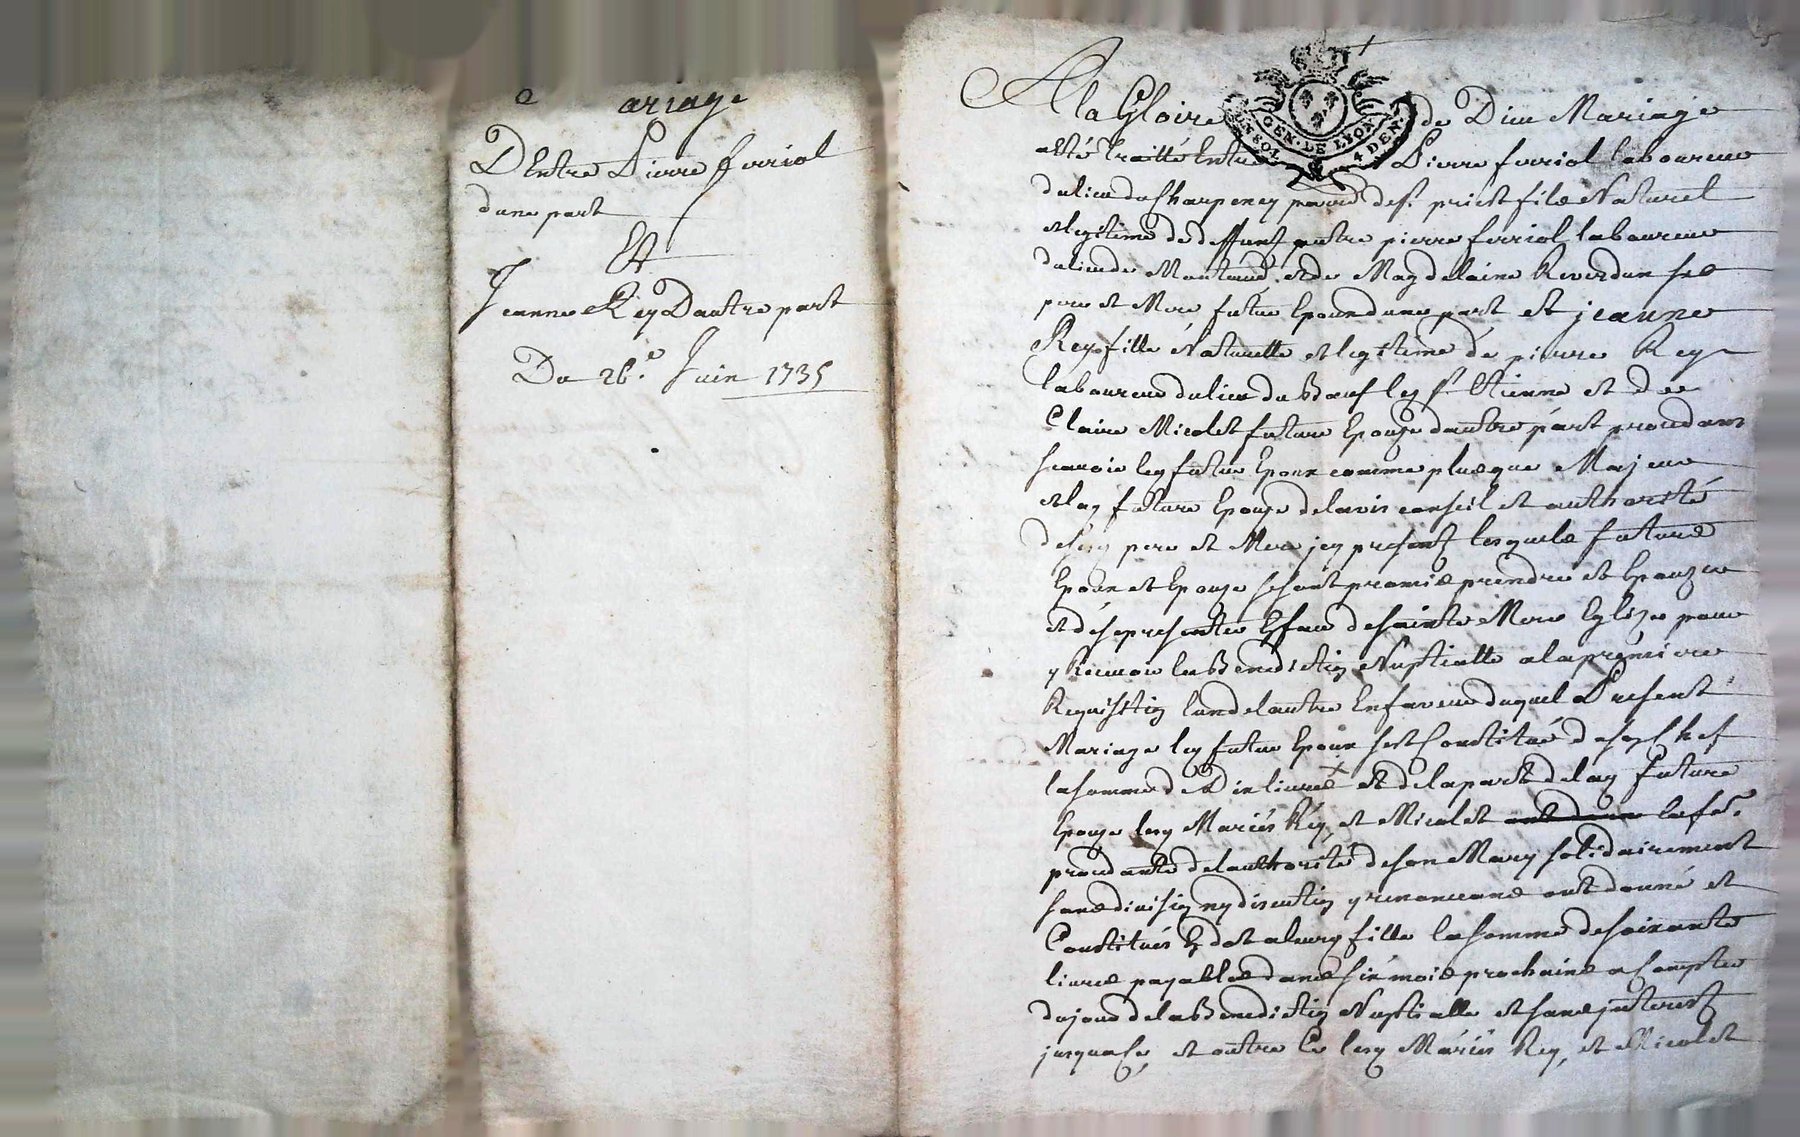 Mariage
D'Entre Pierre ferriol
d'une part
Et
Jeanne Rey D'autre part
Du 26e. Juin 1735
A la Gloire de Dieu Mariage
GEN. DE LYON
4 DEN.
a été traitté Entre Pierre ferriol laboureur
du lieu du Charpeney paroisse de st. priest fils Naturel
et legitime de deffunt autre pierre ferriol laboureur
du lieu de Montaud et de Magdelaine Reverdun ses
pere et Mere futur Epoux d'une part et jeanne
Rey fille Naturelle et legitime de pierre Rey
laboureur du lieu du Bœuf ley st. Etienne et de
Claire Nicolet future Epouze d'autre part procedans
scavoir ley futur Epoux comme plus que Majeur
et lay future Epouze de l'avis conseil et authorité
desesy pere et Mere jcy presentz lesquels futurs
Epoux et Epouze se sont promis prendre et Epouzer
et de se presenter En face de sainte Mere Eglize pour
y Recevoir la Benediction Nuptialle a la premiere
Requisition l'un de l'autre En faveur duquel Present
Mariage ley futur Epoux s'est Constitué de sey Chef
la somme de Dix livres et de la part de lay future
Epouze lesy Mariés Rey et Nicolet la fe.
procedante de l'authorité de son Mary solidairement
sans division ny discution y renonceans ont donné et
Constitués En dot a leury fille la somme de soixante
livres payables dans six mois prochains a Compter
du jour de la Benediction Nuptialle et sans jnterest
jusqu'a Ce, et outre Ce lesy Mariés Rey, et Nicolet